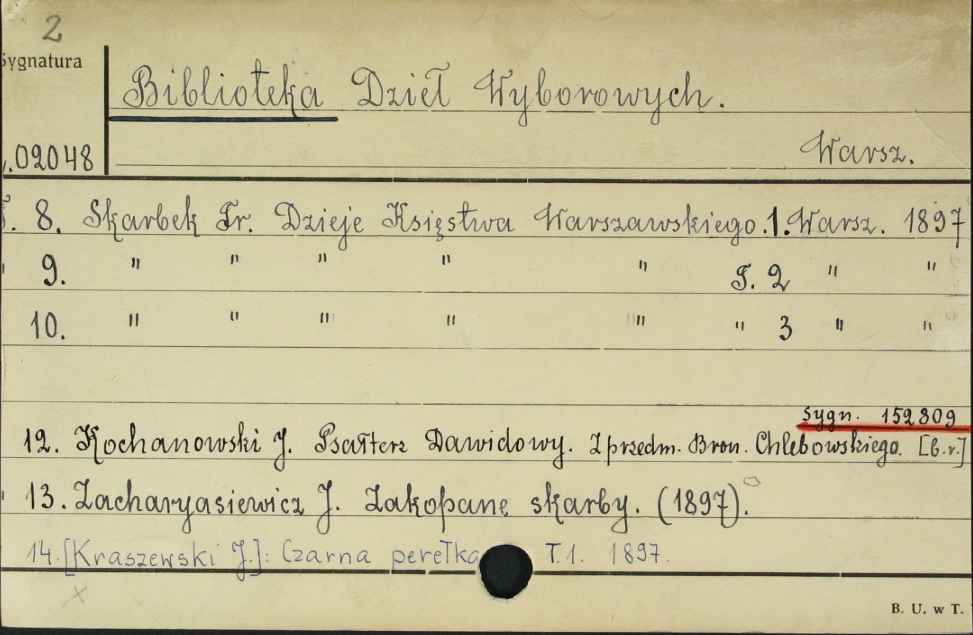 2
Sygnatura
Biblioteka Dzieł Wyborowych.
.02048
Warsz.
T. 8. Skarbek Fr. Dzieje Księstwa Warszawskiego. 1. Warsz. 1897
9. " " " " " T. 2 " "
10. " " " " " " 3 " "
Sygn. 152809
12. Kochanowski J. Psałterz Dawidowy. Z przedm. Bron. Chlebowskiego. [b.r.]
13. Zacharyasiewicz J. Zakopane skarby. (1897).
14. [Kraszewski J.]: Czarna perełka T.1. 1897.
x
B. U. w T.